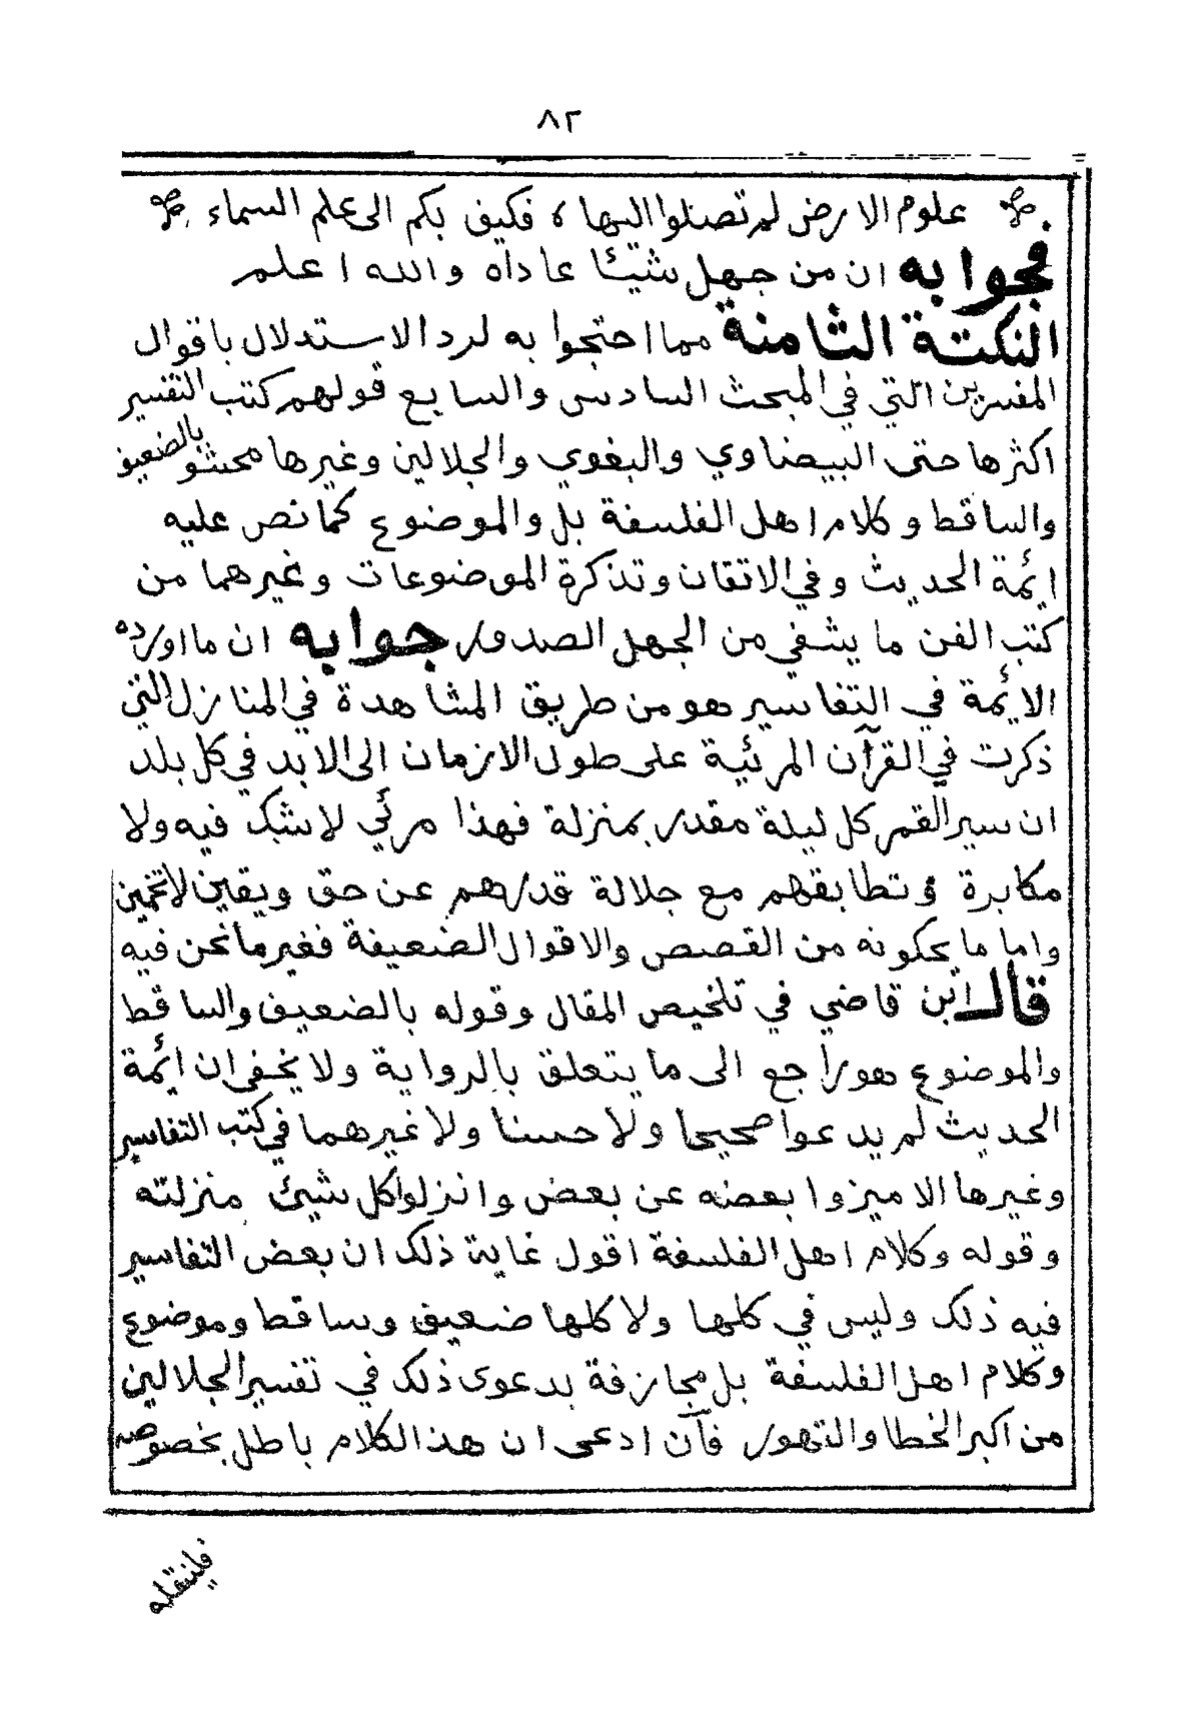 ٨٢
علوم الارض لم تصلوا اليها ٥ فكيف بكم الى علم السماء
فجوابه ان من جهل شيئا عاداه والله اعلم
النكتة الثامنة مما احتجوا به لرد الاستدلال باقوال
المفسرين التي في المبحث السادس والسابع قولهم كتب التفسير
اكثرها حتى البيضاوي والبغوي والجلالين وغيرها محشو بالضعيف
والساقط وكلام اهل الفلسفة بل والموضوع كما نص عليه
ايمة الحديث وفي الاتقان وتذكرة الموضوعات وغيرهما من
كتب الفن ما يشفي من الجهل الصدور جوابه ان ما اورده
الايمة في التفاسير هو من طريق المشاهدة في المنازل التي
ذكرت في القرآن المرئية على طول الازمان الى الابد في كل بلد
ان سير القمر كل ليلة مقدر بمنزلة فهذا مرئي لا شك فيه ولا
مكابرة وتطابقهم مع جلالة قدرهم عن حق ويقين لا تخمين
واما ما يحكونه من القصص والاقوال الضعيفة فغير ما نحن فيه
قال ابن قاضي في تلخيص المقال وقوله بالضعيف والساقط
والموضوع هو راجع الى ما يتعلق بالرواية ولا يخفى ان ايمة
الحديث لم يدعوا صحيحا ولا حسنا ولا غيرهما في كتب التفاسير
وغيرها الا ميزوا بعضه عن بعض وانزلوا كل شيئ منزلته
وقوله وكلام اهل الفلسفة اقول غاية ذلك ان بعض التفاسير
فيه ذلك وليس في كلها ولا كلها ضعيف وساقط وموضوع
وكلام اهل الفلسفة بل مجازفة بدعوى ذلك في تفسير الجلالين
من اكبر الخطا والتهور فآن ادعى ان هذا الكلام باطل بخصوصه
فلننقله